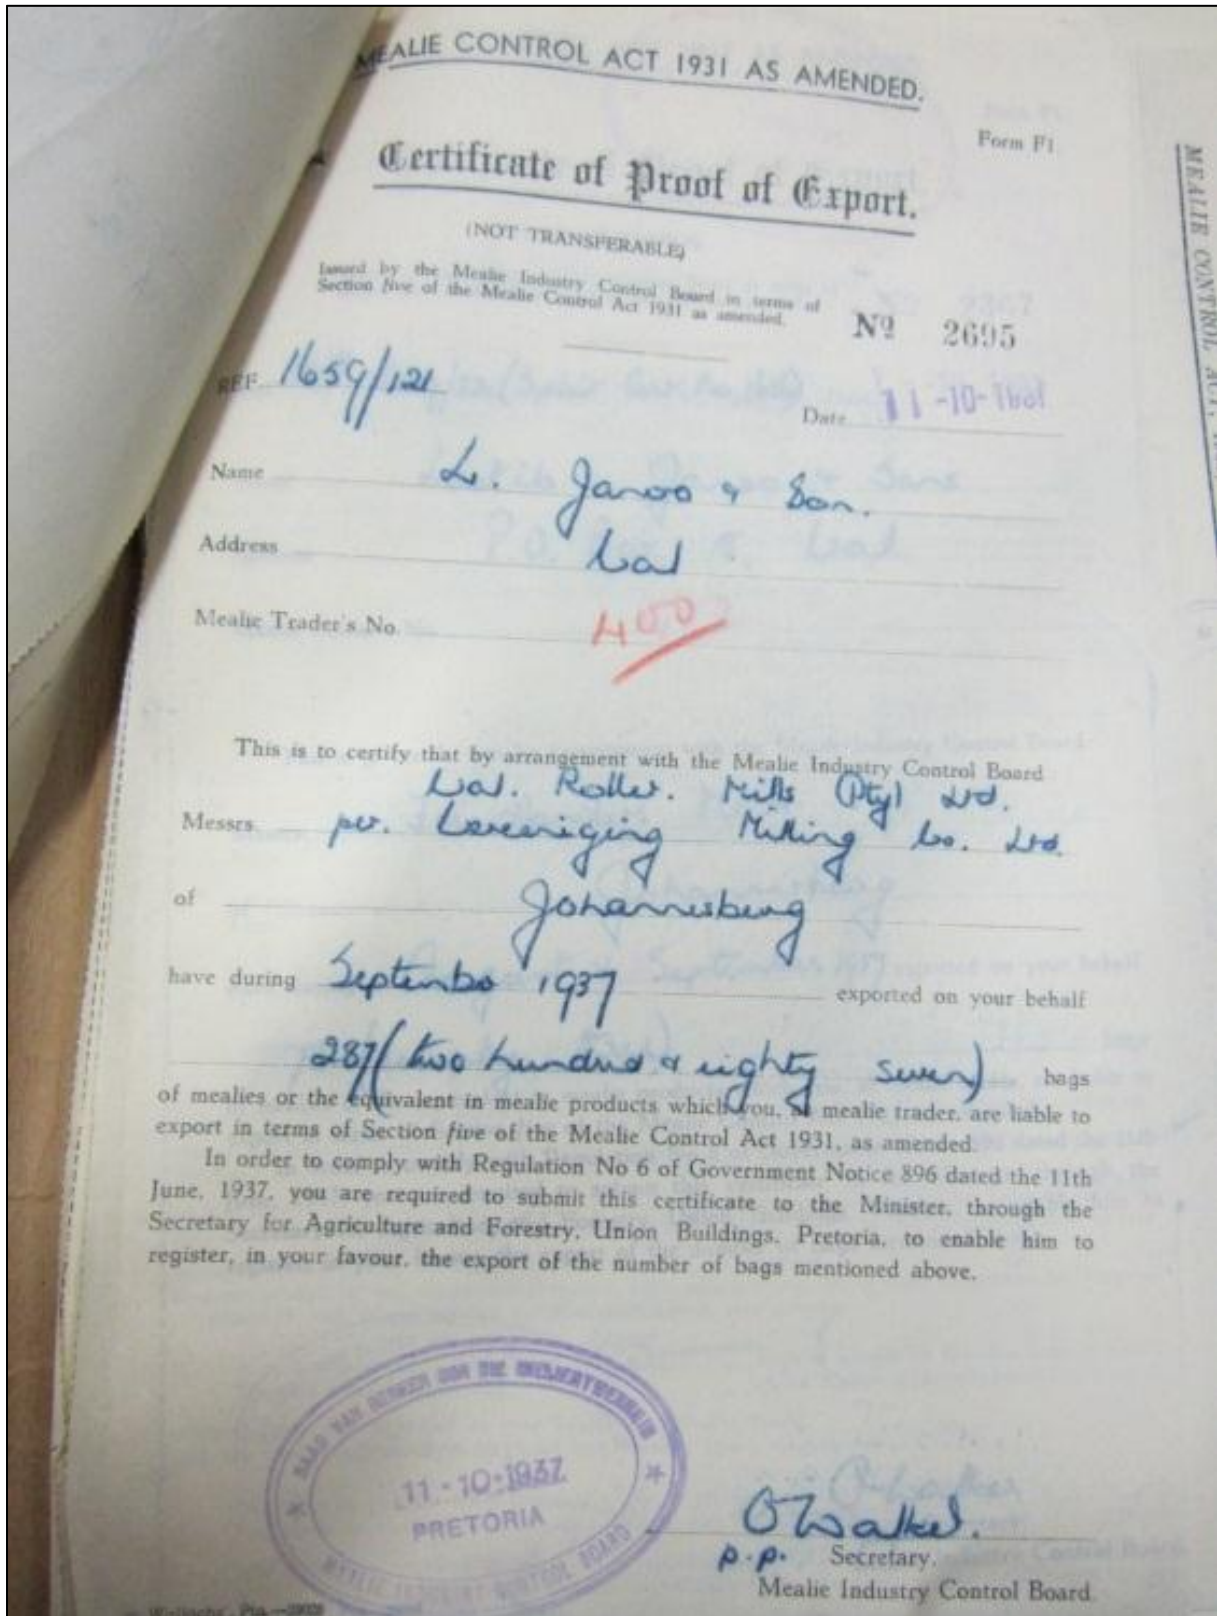 MEALIE CONTROL ACT 1931 AS AMENDED.
Form F1
Certificate of Proof of Export.
(NOT TRANSFERABLE)
Issued by the Mealie Industry Control Board in terms of
Section five of the Mealie Control Act 1931 as amended.
Nº 2695
REF. 1659/121
Date 11-10-
Name L. Jawoo & Son.
Address
Mealie Trader's No. 400
This is to certify that by arrangement with the Mealie Industry Control Board
Roller. Mills (Pty) Ltd.
Messrs. per. Vereeniging Milling Co. Ltd.
of Johannesburg
have during September 1937 exported on your behalf
287 (two hundred & eighty seven) bags
of mealies or the equivalent in mealie products which you, as mealie trader, are liable to
export in terms of Section five of the Mealie Control Act 1931, as amended.
In order to comply with Regulation No 6 of Government Notice 896 dated the 11th
June, 1937, you are required to submit this certificate to the Minister, through the
Secretary for Agriculture and Forestry, Union Buildings, Pretoria, to enable him to
register, in your favour, the export of the number of bags mentioned above.
RAAD VAN BEHEER OOR DIE MIELIENYWERHEID
11-10-1937
PRETORIA
MEALIE INDUSTRY CONTROL BOARD
OWalker.
p.p. Secretary.
Mealie Industry Control Board.
MEALIE CONTROL ACT,